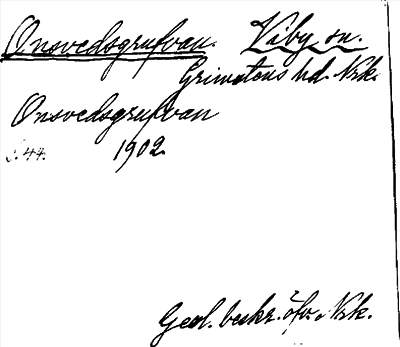 Onsvedsgrufvan. Viby sn.
Grimstens hd. Nrk.
Onsvedsgrufvan
S. 44. 1902.
Geol. beskr. öfv. Nrk.